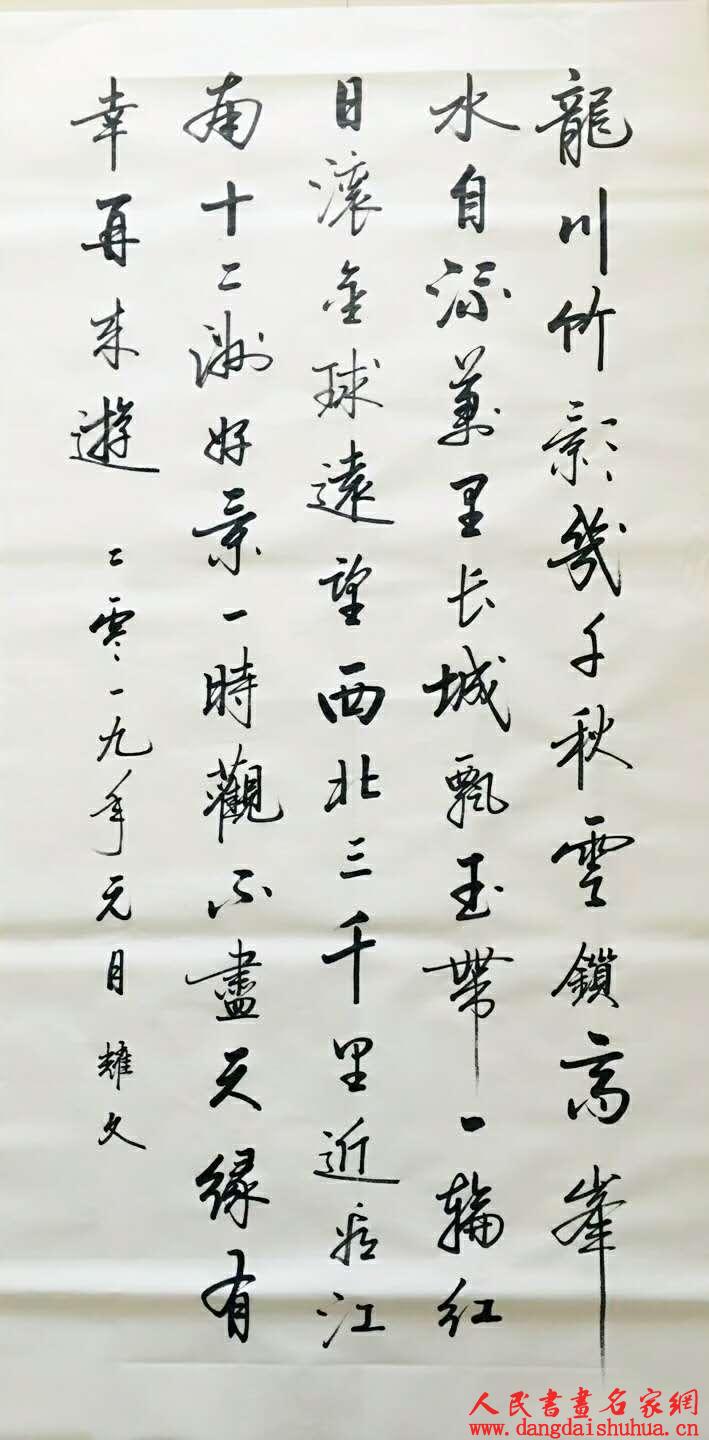 龍川竹影幾千秋雲鎖高峯
水自流萬里长城飄玉帶一輪红
日滾金球遠望西北三千里近看江
南十二洲好景一時觀不盡天緣有
幸再来遊 二零一九年元月 耀文
人民書畫名家網
www.dangdaishuhua.cn